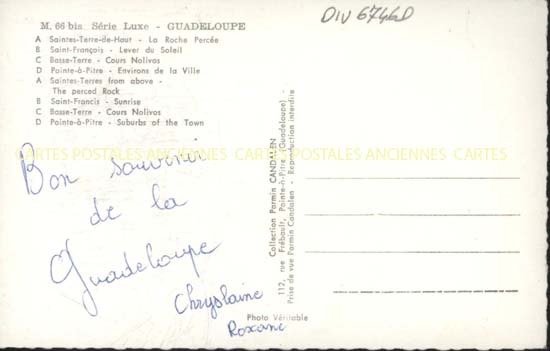 M. 66 bis Série Luxe - GUADELOUPE
A Saintes-Terre-de-Haut - La Roche Percée
B Saint-François - Lever du Soleil
C Basse-Terre - Cours Nolivos
D Pointe-à-Pitre - Environs de la Ville
A Saintes-Terres from above -
The perced Rock
B Saint-Francis - Sunrise
C Basse-Terre - Cours Nolivos
D Pointe-à-Pitre - Suburbs of the Town
DIV 6746D
CARTES POSTALES ANCIENNES CARTES POSTALES ANCIENNES CARTES
Bon souvenir
de la
Guadeloupe
Chryslaine
Roxane
Collection Parmin CANDALEN
112, rue Frébault, Pointe-à-Pitre (Guadeloupe) -
Prise de vue Parmin Candalen - Reproduction interdite
Photo Véritable